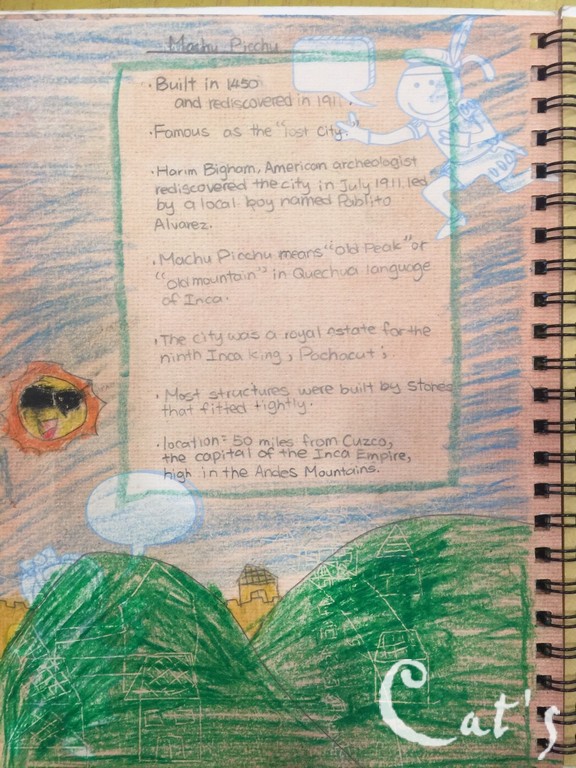 Machu Picchu
· Built in 1450
and rediscovered in 1911.
· Famous as the "lost city."
· Harim Bigham, American archeologist
rediscovered the city in July 1911, led
by a local boy named Pablito
Alvarez.
· Machu Picchu means "Old Peak" or
"old mountain" in Quechua language
of Inca.
· The city was a royal estate for the
ninth Inca king, Pachacuti.
· Most structures were built by stones
that fitted tightly.
· location: 50 miles from Cuzco,
the capital of the Inca Empire,
high in the Andes Mountains.
Cat's